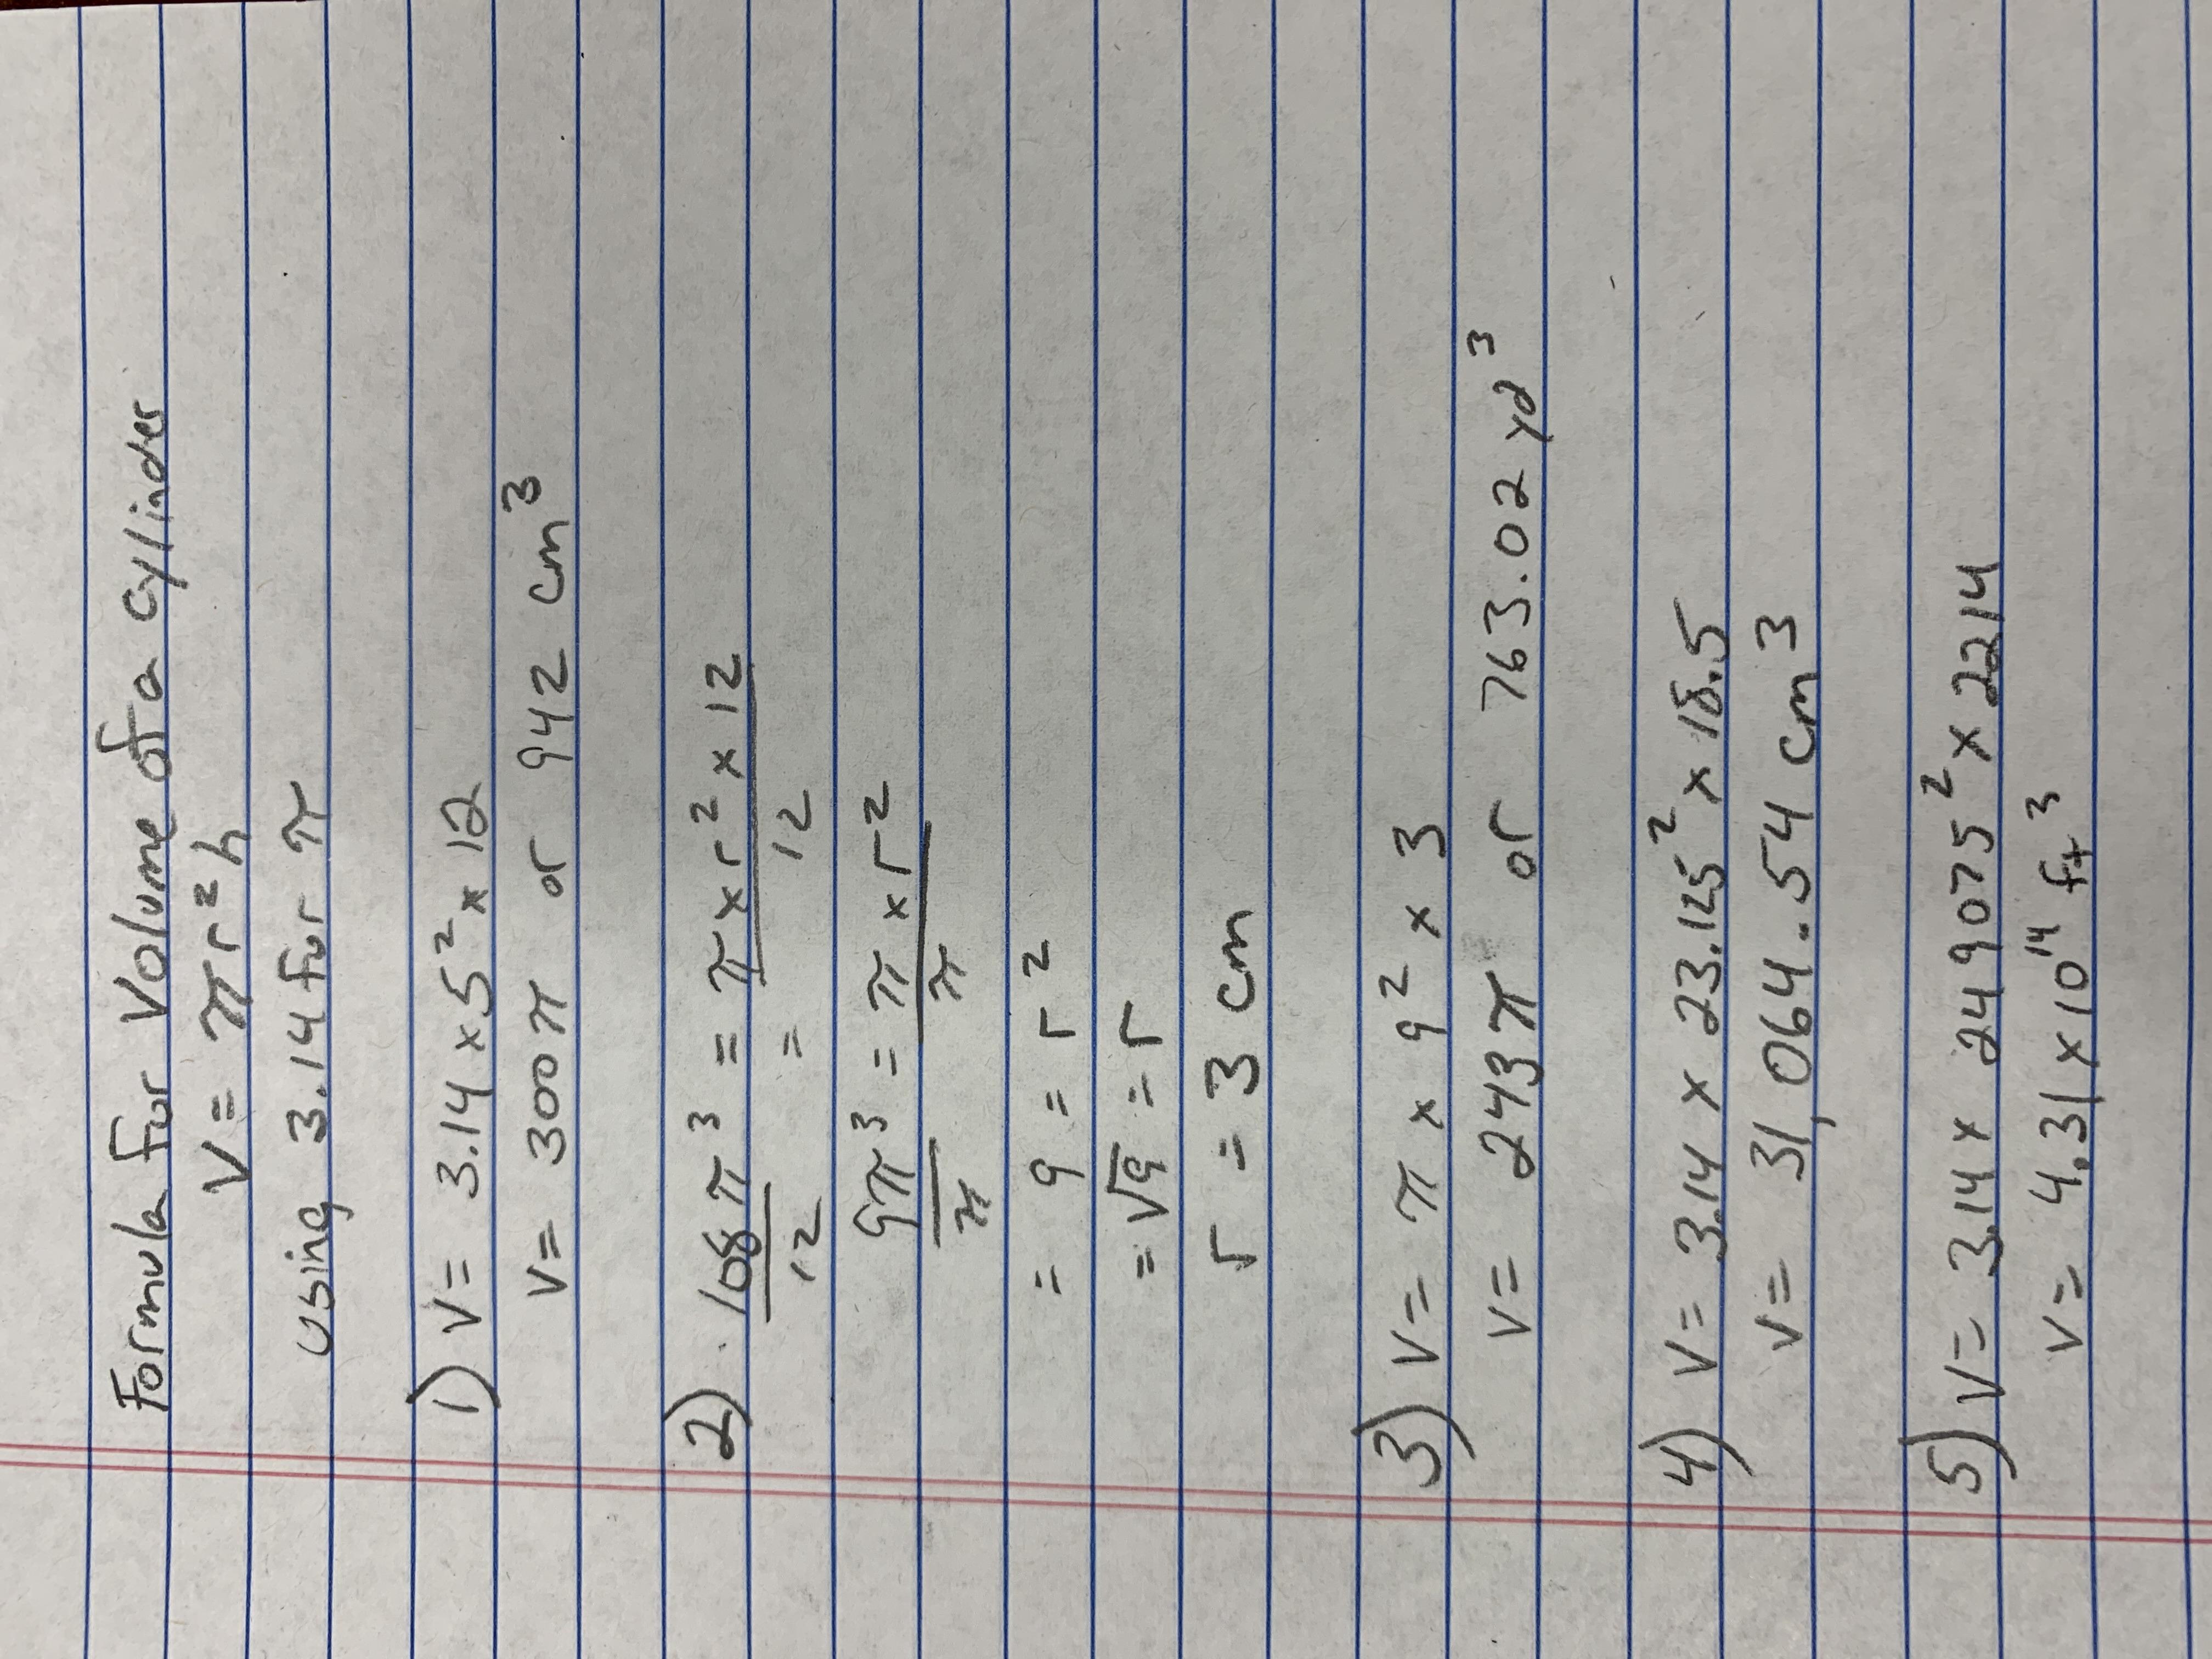 Formula for Volume of a cylinder
V = πr²h
using 3.14 for π
1) V = 3.14 x 5² x 12
V = 300π or 942 cm³
2) 108π³ = π x r² x 12
12 = 12
9π³ = π x r²
π π
= 9 = r²
= √9 = r
r = 3 cm
3) V = π x 9² x 3
V = 243π or 763.02 yd³
4) V = 3.14 x 23.125² x 18.5
V = 31,064.54 cm³
5) V = 3.14 x 249075² x 2214
V = 4.31 x 10¹⁴ ft³